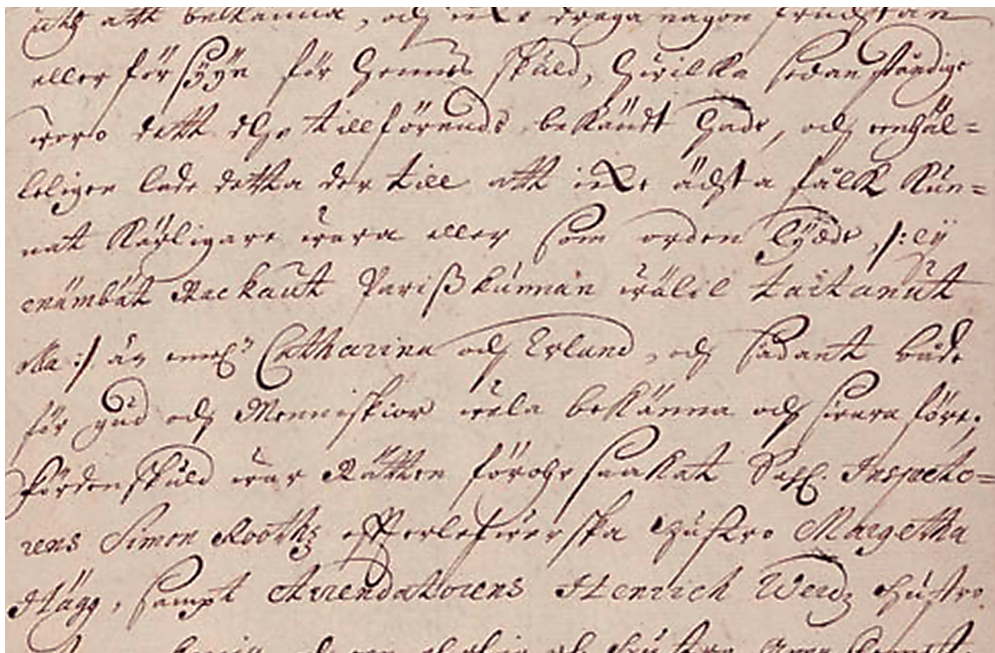 att bekänna, och icke draga någon
eller försÿÿn för hennes skuld, hwilka sedan ständigt
woro dett alt tillförende bekändt hade, och enhäl=
leligen lade detta der till att icke ächta fålk kun=
nat kärligare wara eller som orden lÿda, /: eÿ
enämbät rackaut Parißkunnan wälil taitanut
olla :/ än Catharina och Erland, och sådant både
för gud och Menniskior wela bekänna och swara före;
fördenskuld war Rätten förorsaakat Sahl. Inspecto=
rens Simon Rooths efterlefwerska Hustro Margetha
Hägg, sampt Arrendatorens Henrich Hustro